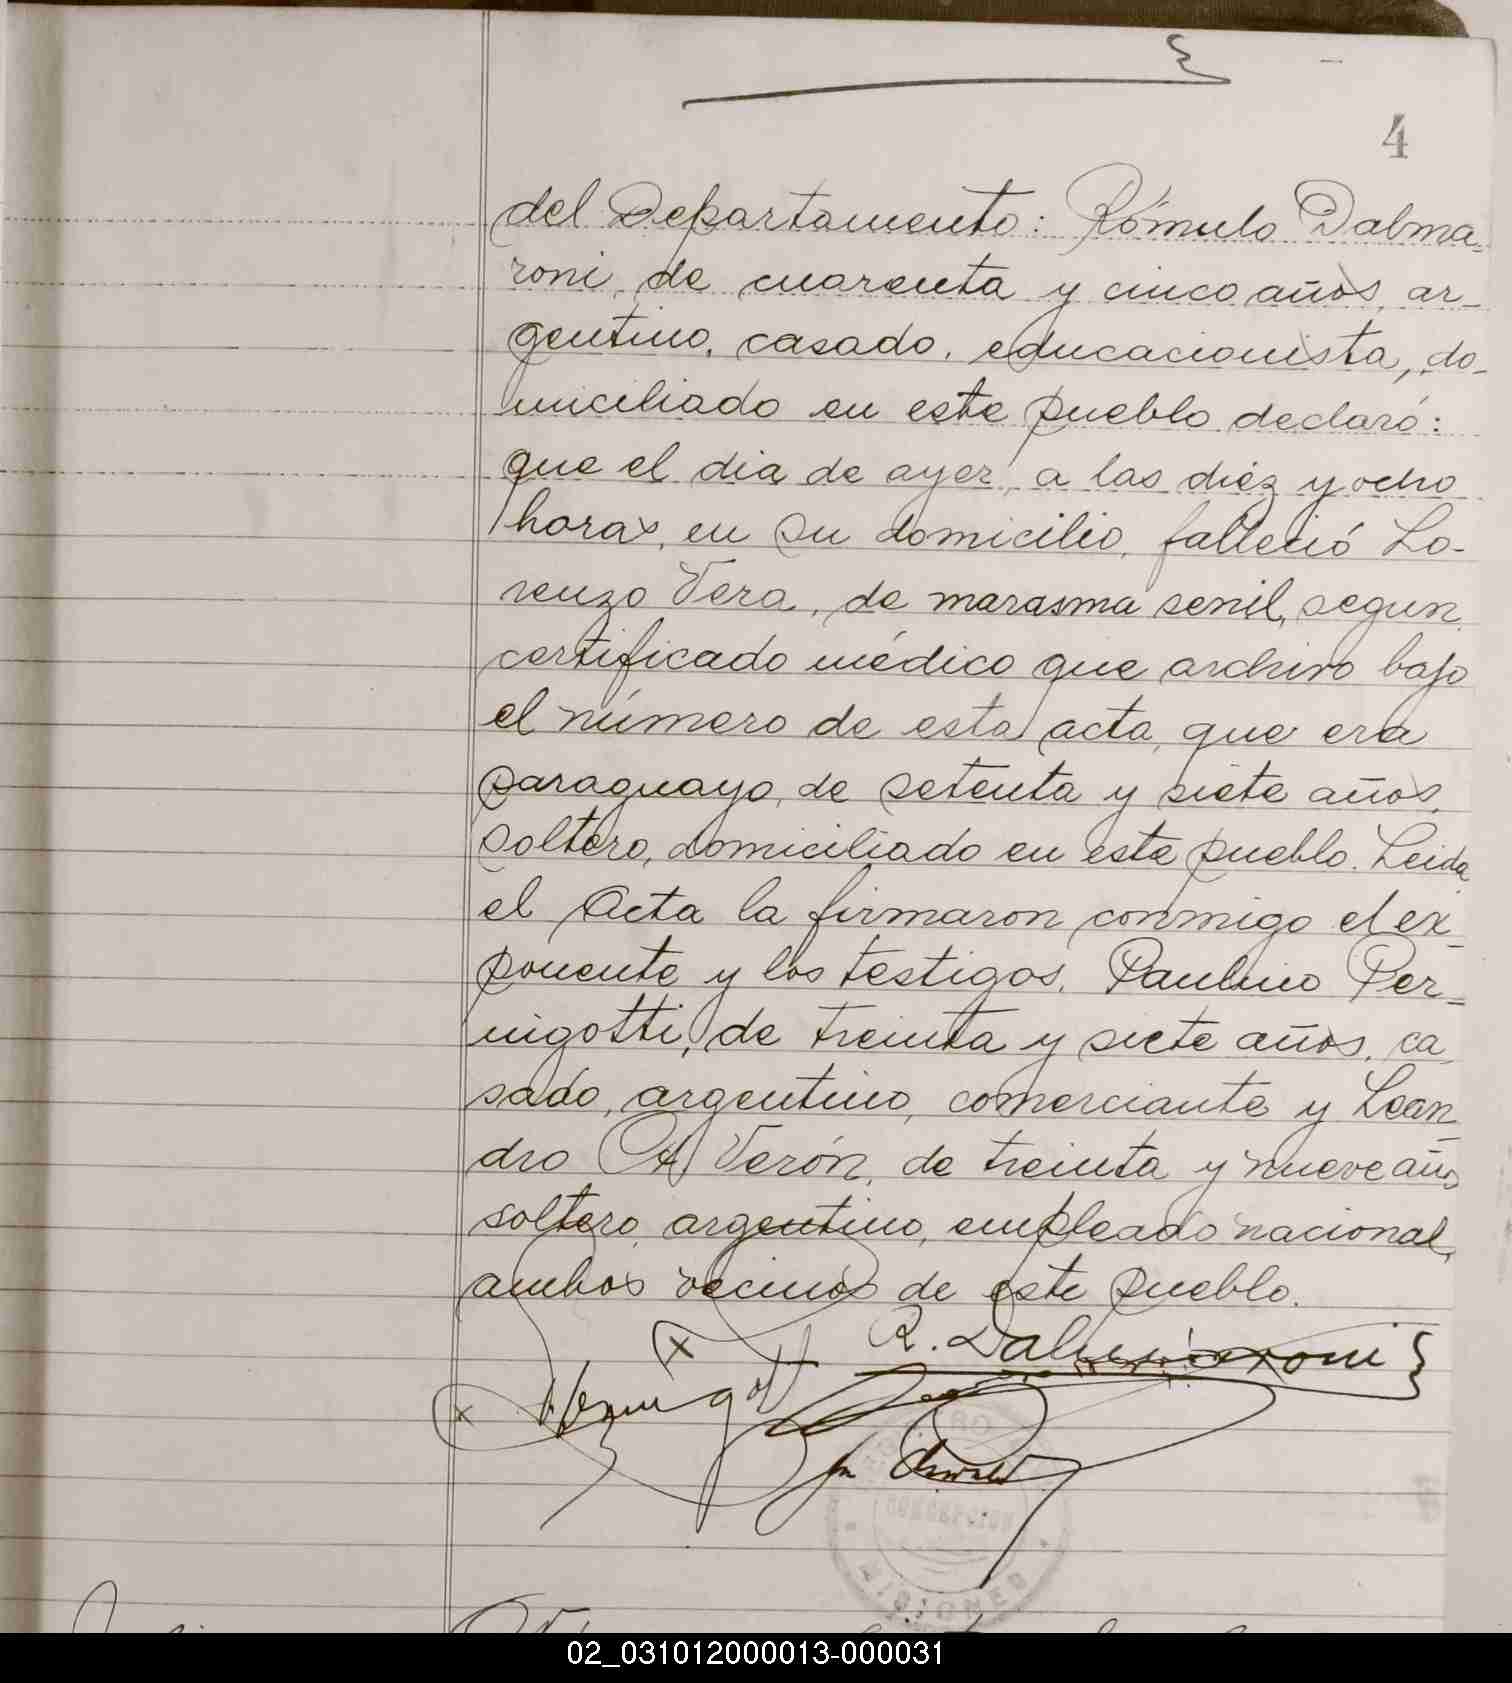 4
del Departamento: Rómulo Dalma=
roni, de cuarenta y cinco años, ar-
gentino, casado, educacionista, do-
miciliado en este pueblo declaró:
que el dia de ayer, a las diez y ocho
horas, en su domicilio, falleció Lo-
renzo Vera, de marasma senil, segun
certificado médico que archivo bajo
el número de esta acta, que era
paraguayo, de setenta y siete años,
soltero, domiciliado en este pueblo. Leida
el Acta la firmaron conmigo el ex-
ponente y los testigos, Paulino Per=
nigotti, de treinta y siete años, ca
sado, argentino, comerciante y Lean-
dro A Verón, de treinta y nueve años
soltero, argentino, empleado nacional,
ambos vecinos de este pueblo.
R. Dalmaroni
MISIONES
02_031012000013-000031